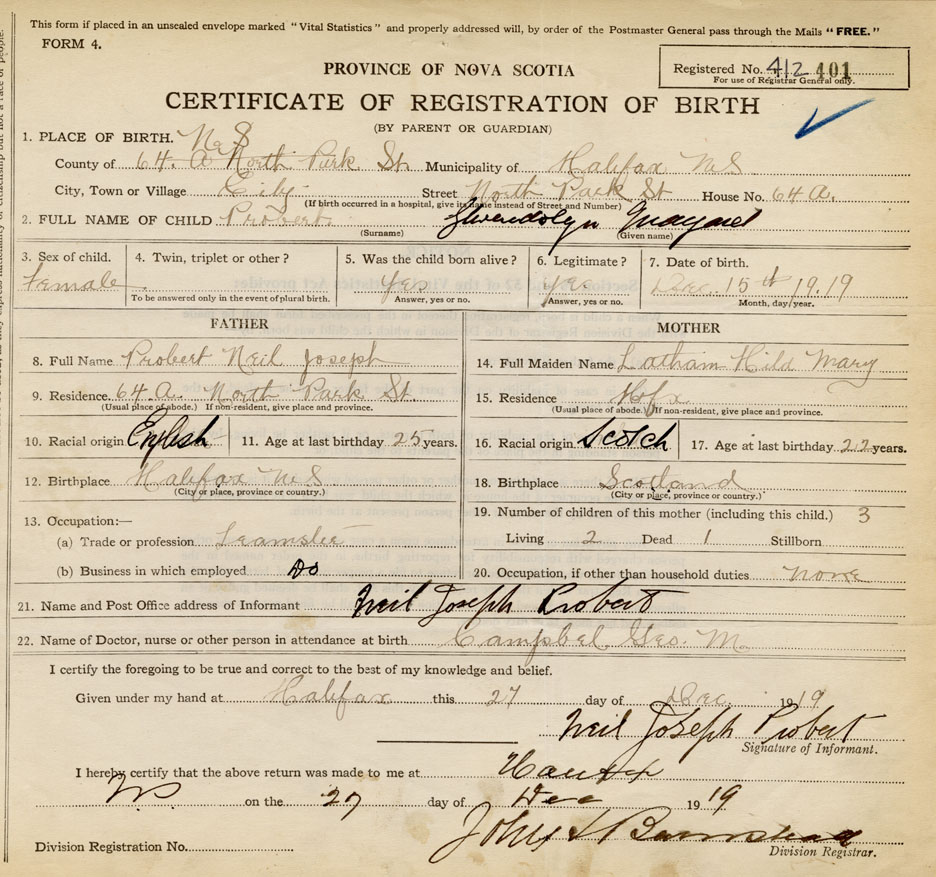 This form if placed in an unsealed envelope marked "Vital Statistics" and properly addressed will, by order of the Postmaster General pass through the Mails "FREE."
FORM 4.
Registered No. 412 401
For use of Registrar General only.
PROVINCE OF NOVA SCOTIA
CERTIFICATE OF REGISTRATION OF BIRTH
(BY PARENT OR GUARDIAN)
1. PLACE OF BIRTH. N S
County of 64. A North Park St. Municipality of Halifax N S
City, Town or Village City Street North Park St House No. 64 A.
(If birth occurred in a hospital, give its name instead of Street and Number)
2. FULL NAME OF CHILD Probert Gwendolyn Margaret
(Surname) (Given name)
3. Sex of child. 4. Twin, triplet or other? 5. Was the child born alive? 6. Legitimate? 7. Date of birth.
Female yes yes Dec. 15th 1919
To be answered only in the event of plural birth. Answer, yes or no. Answer, yes or no. Month, day/year.
FATHER
8. Full Name Probert Neil Joseph
9. Residence. 64 A. North Park St.
(Usual place of abode.) If non-resident, give place and province.
10. Racial origin English 11. Age at last birthday 25 years.
12. Birthplace Halifax N S
(City or place, province or country.)
13. Occupation:—
(a) Trade or profession Teamster
(b) Business in which employed Do
MOTHER
14. Full Maiden Name Latham Hild Mary
15. Residence Hfx
(Usual place of abode.) If non-resident, give place and province.
16. Racial origin Scotch 17. Age at last birthday 22 years.
18. Birthplace Scotland
(City or place, province or country.)
19. Number of children of this mother (including this child.) 3
Living 2 Dead 1 Stillborn
20. Occupation, if other than household duties none
21. Name and Post Office address of Informant Neil Joseph Probert
22. Name of Doctor, nurse or other person in attendance at birth Campbel Geo. M.
I certify the foregoing to be true and correct to the best of my knowledge and belief.
Given under my hand at Halifax this 27 day of Dec. 1919
Neil Joseph Probert
Signature of Informant.
I hereby certify that the above return was made to me at Halifax
NS on the 27 day of Dec 1919
John
Division Registration No. Division Registrar.